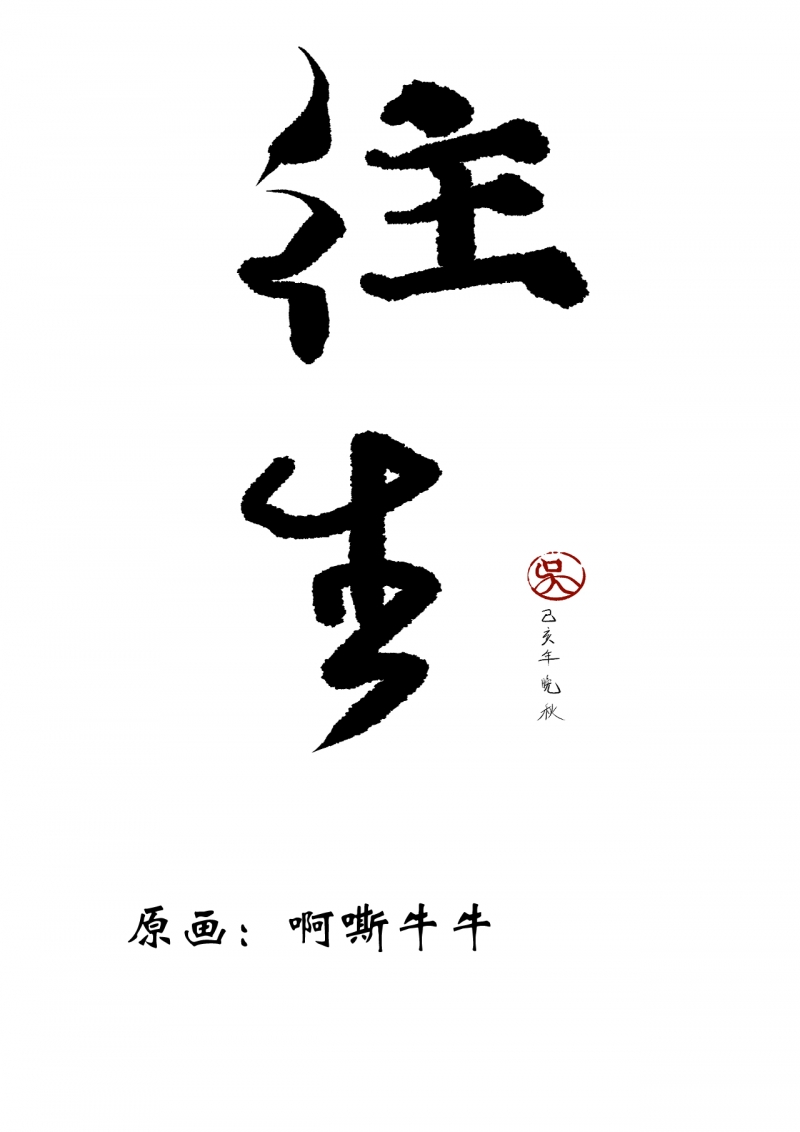 往生
吴
己亥年晚秋
原画：啊嘶牛牛